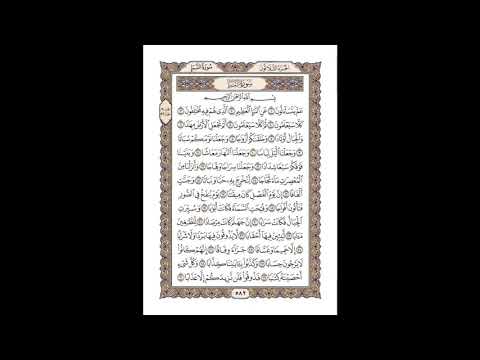 الجزء الثلاثون سورة النبإ
سورة النبإ
بِسْمِ اللَّهِ الرَّحْمَٰنِ الرَّحِيمِ
عَمَّ يَتَسَاءَلُونَ ١ عَنِ النَّبَإِ الْعَظِيمِ ٢ الَّذِي هُمْ فِيهِ مُخْتَلِفُونَ ٣
كَلَّا سَيَعْلَمُونَ ٤ ثُمَّ كَلَّا سَيَعْلَمُونَ ٥ أَلَمْ نَجْعَلِ الْأَرْضَ مِهَٰدًا ٦
وَالْجِبَالَ أَوْتَادًا ٧ وَخَلَقْنَٰكُمْ أَزْوَٰجًا ٨ وَجَعَلْنَا نَوْمَكُمْ سُبَاتًا
٩ وَجَعَلْنَا الَّيْلَ لِبَاسًا ١٠ وَجَعَلْنَا النَّهَارَ مَعَاشًا ١١ وَبَنَيْنَا
فَوْقَكُمْ سَبْعًا شِدَادًا ١٢ وَجَعَلْنَا سِرَاجًا وَهَّاجًا ١٣ وَأَنزَلْنَا مِنَ
الْمُعْصِرَٰتِ مَاءً ثَجَّاجًا ١٤ لِّنُخْرِجَ بِهِ حَبًّا وَنَبَاتًا ١٥ وَجَنَّٰتٍ
أَلْفَافًا ١٦ إِنَّ يَوْمَ الْفَصْلِ كَانَ مِيقَٰتًا ١٧ يَوْمَ يُنفَخُ فِي الصُّورِ
فَتَأْتُونَ أَفْوَاجًا ١٨ وَفُتِحَتِ السَّمَاءُ فَكَانَتْ أَبْوَٰبًا ١٩ وَسُيِّرَتِ
الْجِبَالُ فَكَانَتْ سَرَابًا ٢٠ إِنَّ جَهَنَّمَ كَانَتْ مِرْصَادًا ٢١ لِّلطَّٰغِينَ
مَـَٔابًا ٢٢ لَّٰبِثِينَ فِيهَا أَحْقَابًا ٢٣ لَّا يَذُوقُونَ فِيهَا بَرْدًا وَلَا شَرَابًا
٢٤ إِلَّا حَمِيمًا وَغَسَّاقًا ٢٥ جَزَاءً وِفَاقًا ٢٦ إِنَّهُمْ كَانُوا
لَا يَرْجُونَ حِسَابًا ٢٧ وَكَذَّبُوا بِـَٔايَٰتِنَا كِذَّابًا ٢٨ وَكُلَّ شَيْءٍ
أَحْصَيْنَٰهُ كِتَٰبًا ٢٩ فَذُوقُوا فَلَن نَّزِيدَكُمْ إِلَّا عَذَابًا ٣٠
٥٨٢